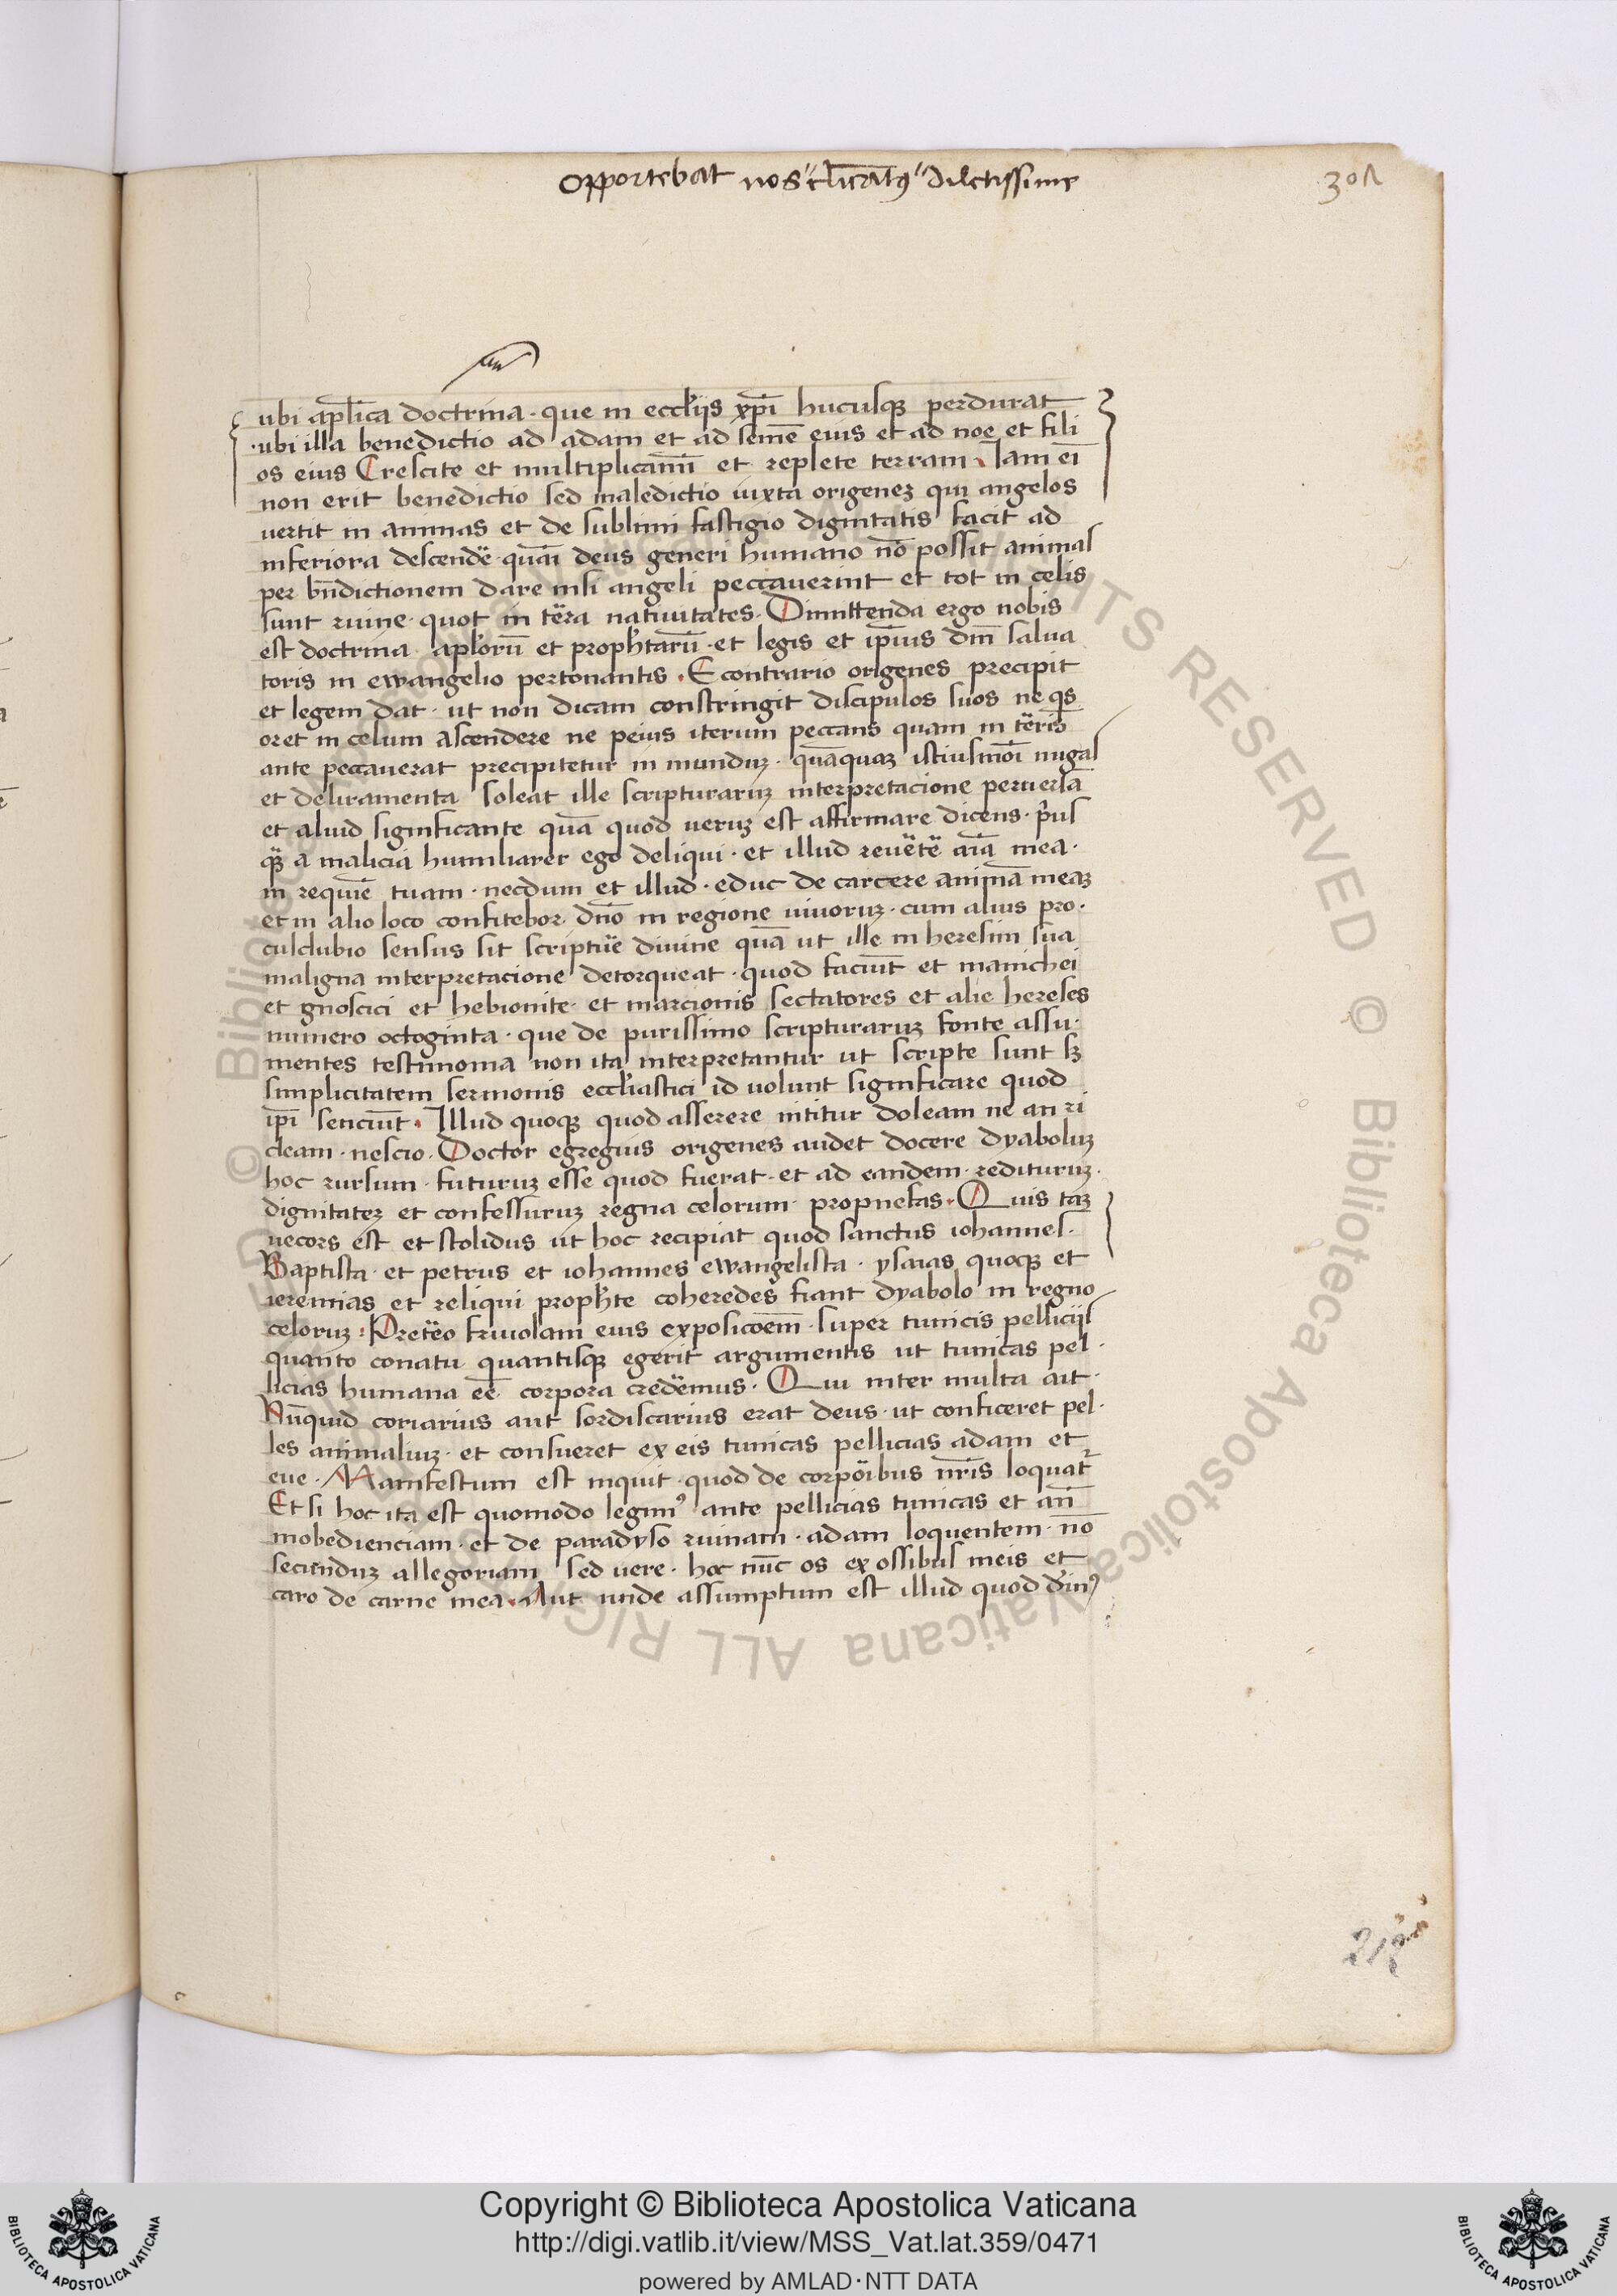 Opportebat nos "clicat9" dilctissime
301
ubi aplica doctrina · que in eccliis xpi hucusq perdurat
· ubi illa benedictio ad adam et ad seme eius et ad noe et fili
os eius Crescite et multiplicamini et replete terram · Iam ei
non erit benedictio sed maledictio iuxta origenez qui angelos
uertit in animas et de sublimi fastigio dignitatis facit ad
inferiora descende · quasi deus generi humano no possit animas
per bndictionem dare nisi angeli peccauerint et tot in celis
sunt ruine · quot in tera natiuitates · Dimittenda ergo nobis
est doctrina aplorū et prophtarū · et legis et ipsius dni salua
toris in ewangelio pertonantis · Econtrario origenes precipit
et legem dat · ut non dicam constringit discipulos suos ne qs
oret in celum ascendere ne peius iterum peccans quam in teris
ante peccauerat precipitetur in munduz · quāquaz istiusmoi nugas
et deliramenta soleat ille scripturaruz interpretacione peruersā
et aliud significante quā quod ueruz est affirmare dicens · prius
qz a malicia humiliarer ego deliqui · et illud reuete aia mea ·
in requiē tuam · necdum et illud · educ de carcere animā meaz
et in alio loco confitebor dno in regione uiuoruz · cum alius pro ·
culdubio sensus sit scripture diuine quā ut ille in heresim sua
maligna interpretacione detorqueat · quod faciūt et manichei
et gnoscici et hebionite · et marcionis sectatores et alie hereses
numero octoginta · que de purissimo scripturaruz fonte assu ·
mentes testimonia non ita interpretantur ut scripte sunt sz
simplicitatem sermonis eccliastici id uolunt significare quod
ipi senciūt · Illud quoq quod asserere nititur doleam ne an ri
deam · nescio · Doctor egregius origenes audet docere dyaboluz
hoc rursum · futuruz esse quod fuerat · et ad eandem · redituruz ·
dignitatez et confessuruz regna celorum · propnefas · Quis taz
uecors est et stolidus ut hoc recipiat quod sanctus iohannes ·
Baptista · et petrus et iohannes ewangelista · ysaias quoq et
ieremias et reliqui prophte coheredes fiant dyabolo in regno
celoruz : Pretereo friuolam eius exposicoēm · super tunicis pelliciis
quanto conatu quantisq egerit argumentis ut tunicas pel ·
licias humana eē corpora credemus · Qui inter multa ait ·
Nūquid coriarius aut sordiscarius erat deus · ut conficeret pel ·
les animaliuz · et consueret ex eis tunicas pellicias adam et
eue · Manifestum est inquit · quod de corporibus nris loquat
Et si hoc ita est quomodo legim9 ante pellicias tunicas et an
inobedienciam · et de paradyso ruinam · adam loquentem · nō
secunduz allegoriam sed uere · hoc nūc os ex ossibus meis et
caro de carne mea · Aut unde assumptum est illud quod diin9
212
Copyright © Biblioteca Apostolica Vaticana
http://digi.vatlib.it/view/MSS_Vat.lat.359/0471
powered by AMLAD·NTT DATA
BIBLIOTECA APOSTOLICA VATICANA
BIBLIOTECA APOSTOLICA VATICANA